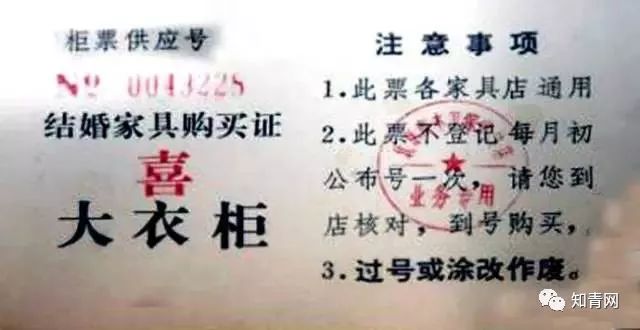 柜票供应号
No 0043228
结婚家具购买证
喜
大衣柜
注意事项
1.此票各家具店通用
2.此票不登记每月初
公布号一次，请您到
店核对，到号购买，
3.过号或涂改作废。
业务专用
知青网